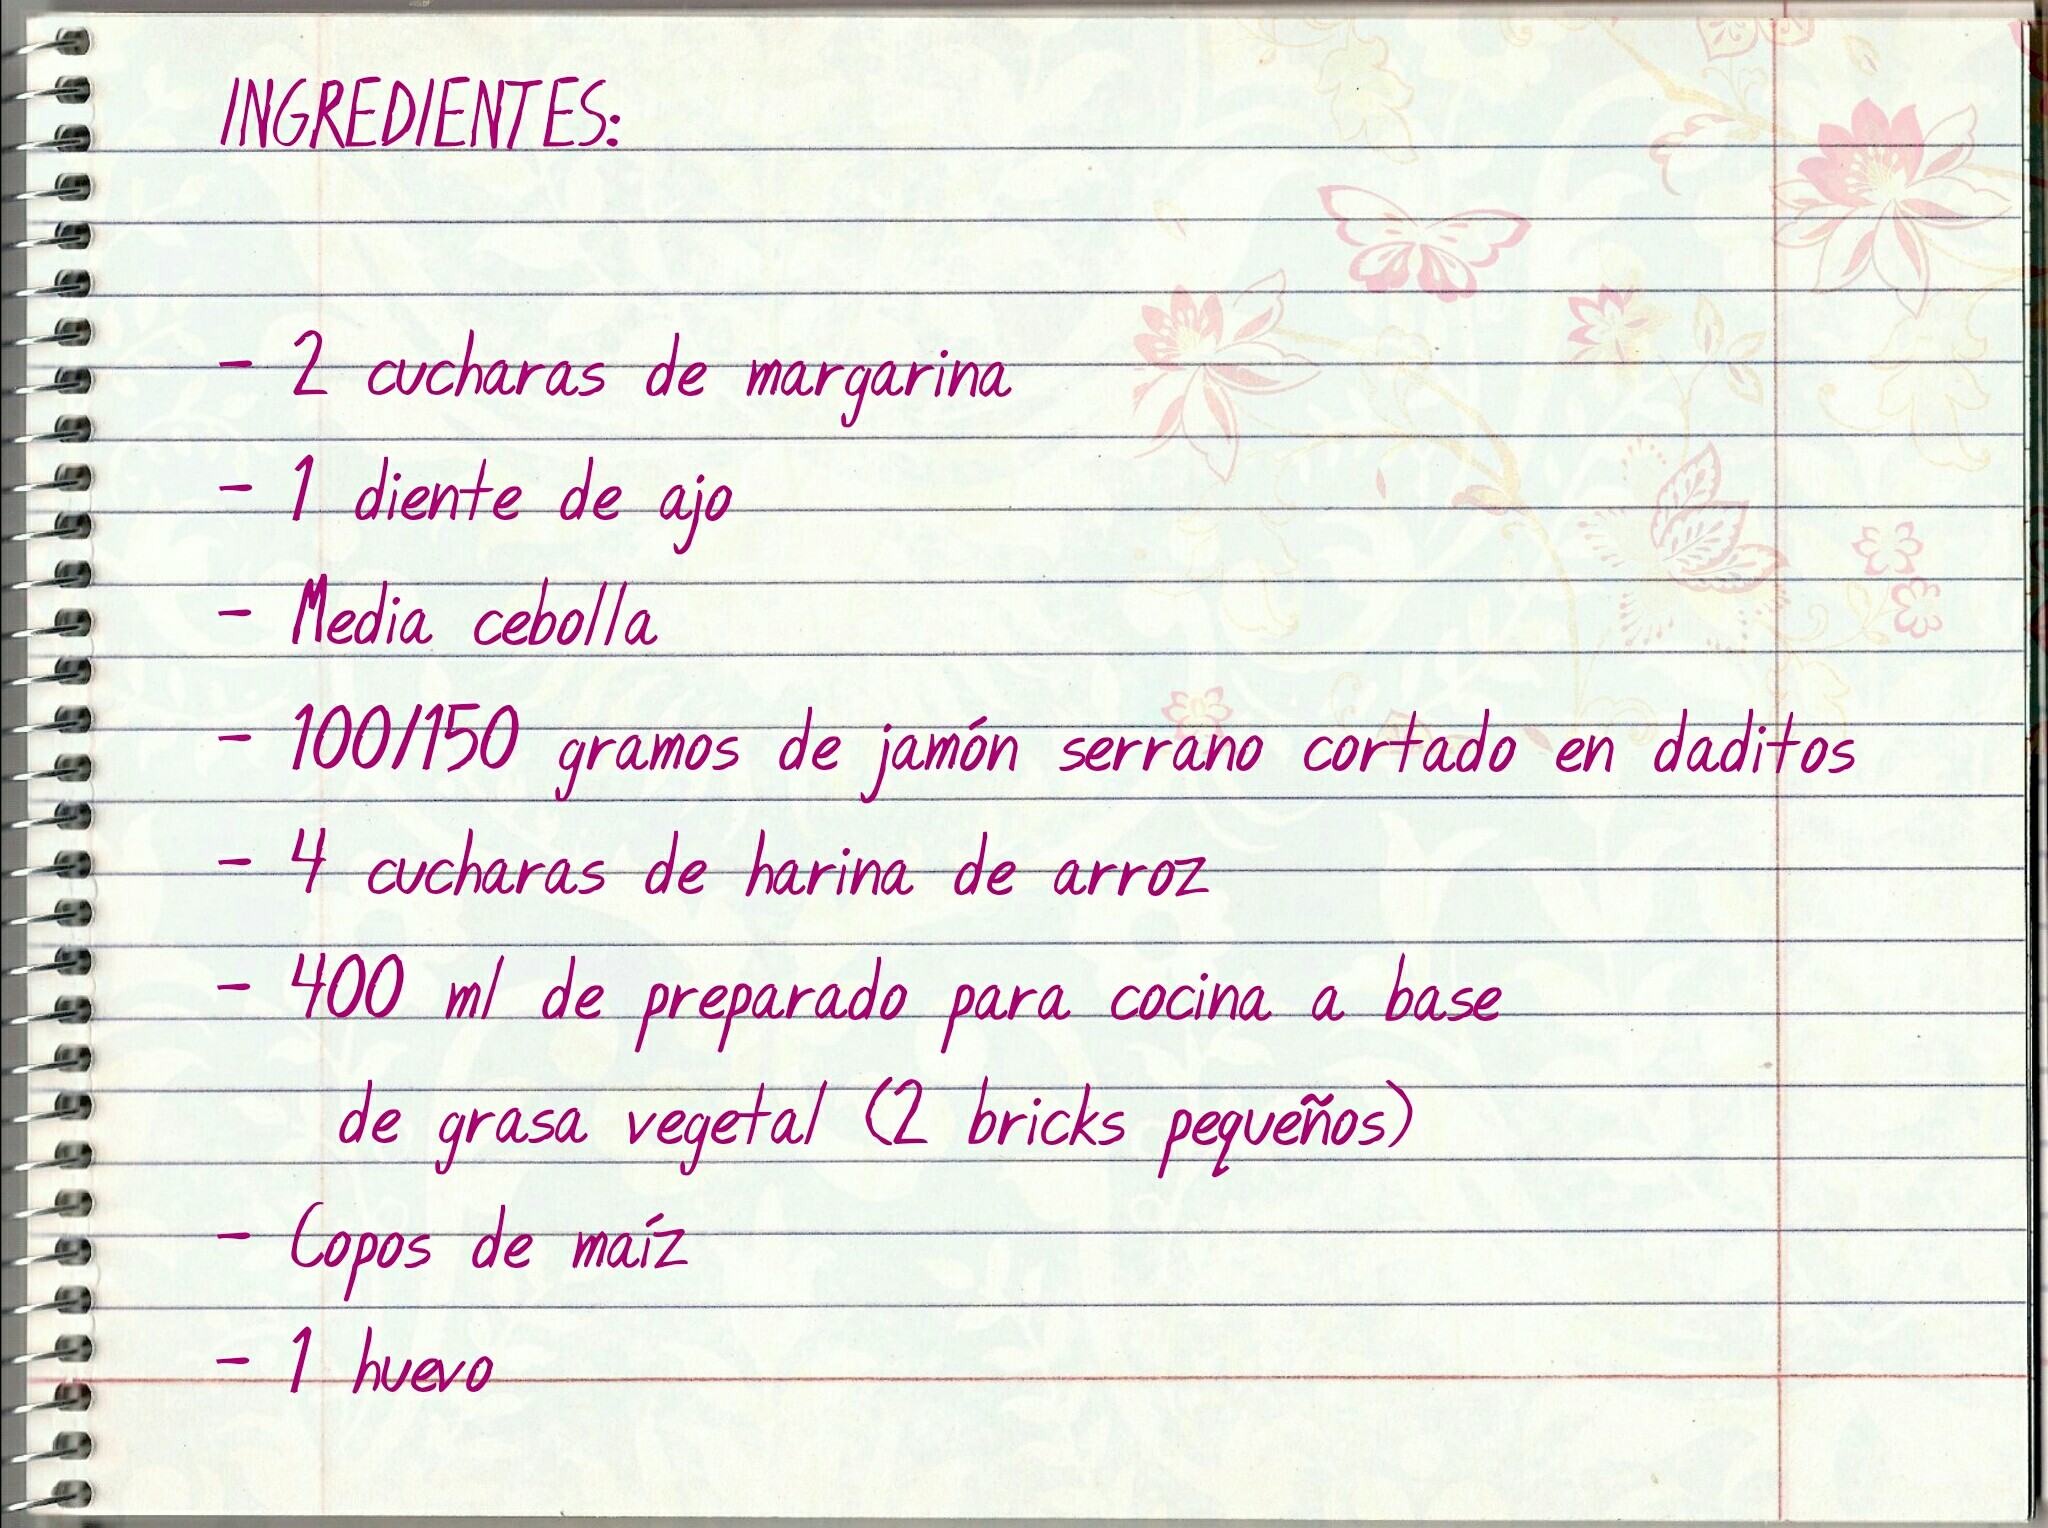 INGREDIENTES:
- 2 cucharas de margarina
- 1 diente de ajo
- Media cebolla
- 100/150 gramos de jamón serrano cortado en daditos
- 4 cucharas de harina de arroz
- 400 ml de preparado para cocina a base
de grasa vegetal (2 bricks pequeños)
- Copos de maíz
- 1 huevo